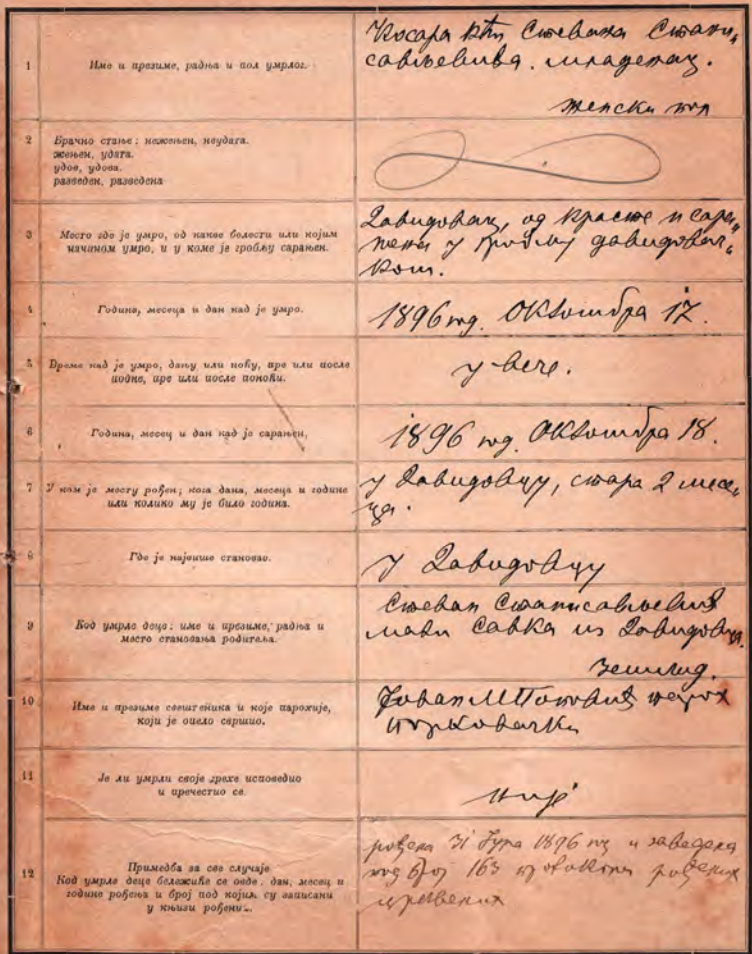 1
Име и презиме, радња и пол умрлог.
Косара кћи Стевана Стани„
сављевића. младенац.
женски пол
2
Брачно стање: нежењен, неудата.
жењен, удата.
удов, удова.
разведен, разведена
3
Место где је умро, од какве болести или којим
начином умро, и у коме је гробљу сарањен.
Давидовац, од красте и сара„
њена у гробљу давидовач„
ком.
4
Година, месеца и дан кад је умро.
1896 год. Октомбра 17.
5
Време кад је умро, дању или ноћу, пре или после
подне, пре или после поноћи.
у вече.
6
Година, месец и дан кад је сарањен.
1896 год. Октомбра 18.
7
У ком је месту рођен; кога дана, месеца и године
или колико му је било година.
у Давидовцу, стара 2 месе„
ца.
8
Где је највише становао.
у Давидовцу
9
Код умрле деце: име и презиме, радња и
место становања родитеља.
Стеван Станисављевић
мати Савка из Давидовца.
земљод.
10
Име и презиме свештеника и које парохије,
који је опело свршио.
Јован М Поповић парох
11
Је ли умрли своје грехе исповедио
и причестио се.
није
12
Примедба за све случаје
Код умрле деце бележиће се овде: дан, месец и
године рођења и број под којим су записани
у књизи рођених.
рођена 31 Јула 1896 год и заведена
под број 163 протокола рођених
црквених